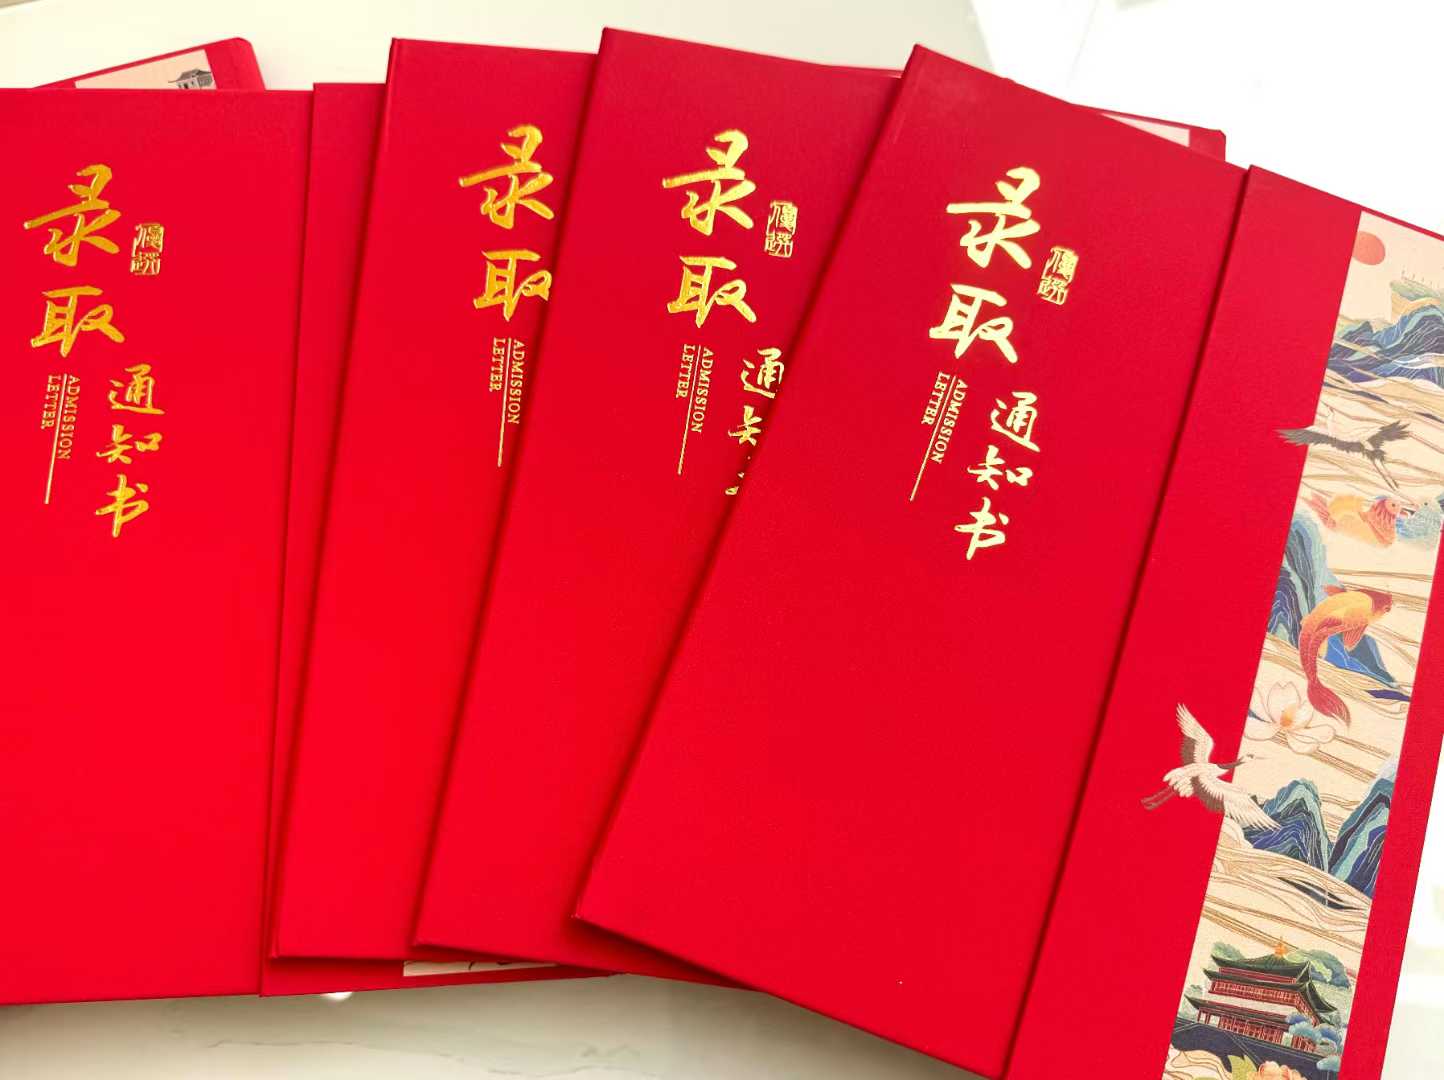 录取
優選
通知书
ADMISSION
LETTER
录取
ADMISSION
LETTER
录取
優選
通知
ADMISSION
LETTER
录取
優選
通知书
ADMISSION
LETTER